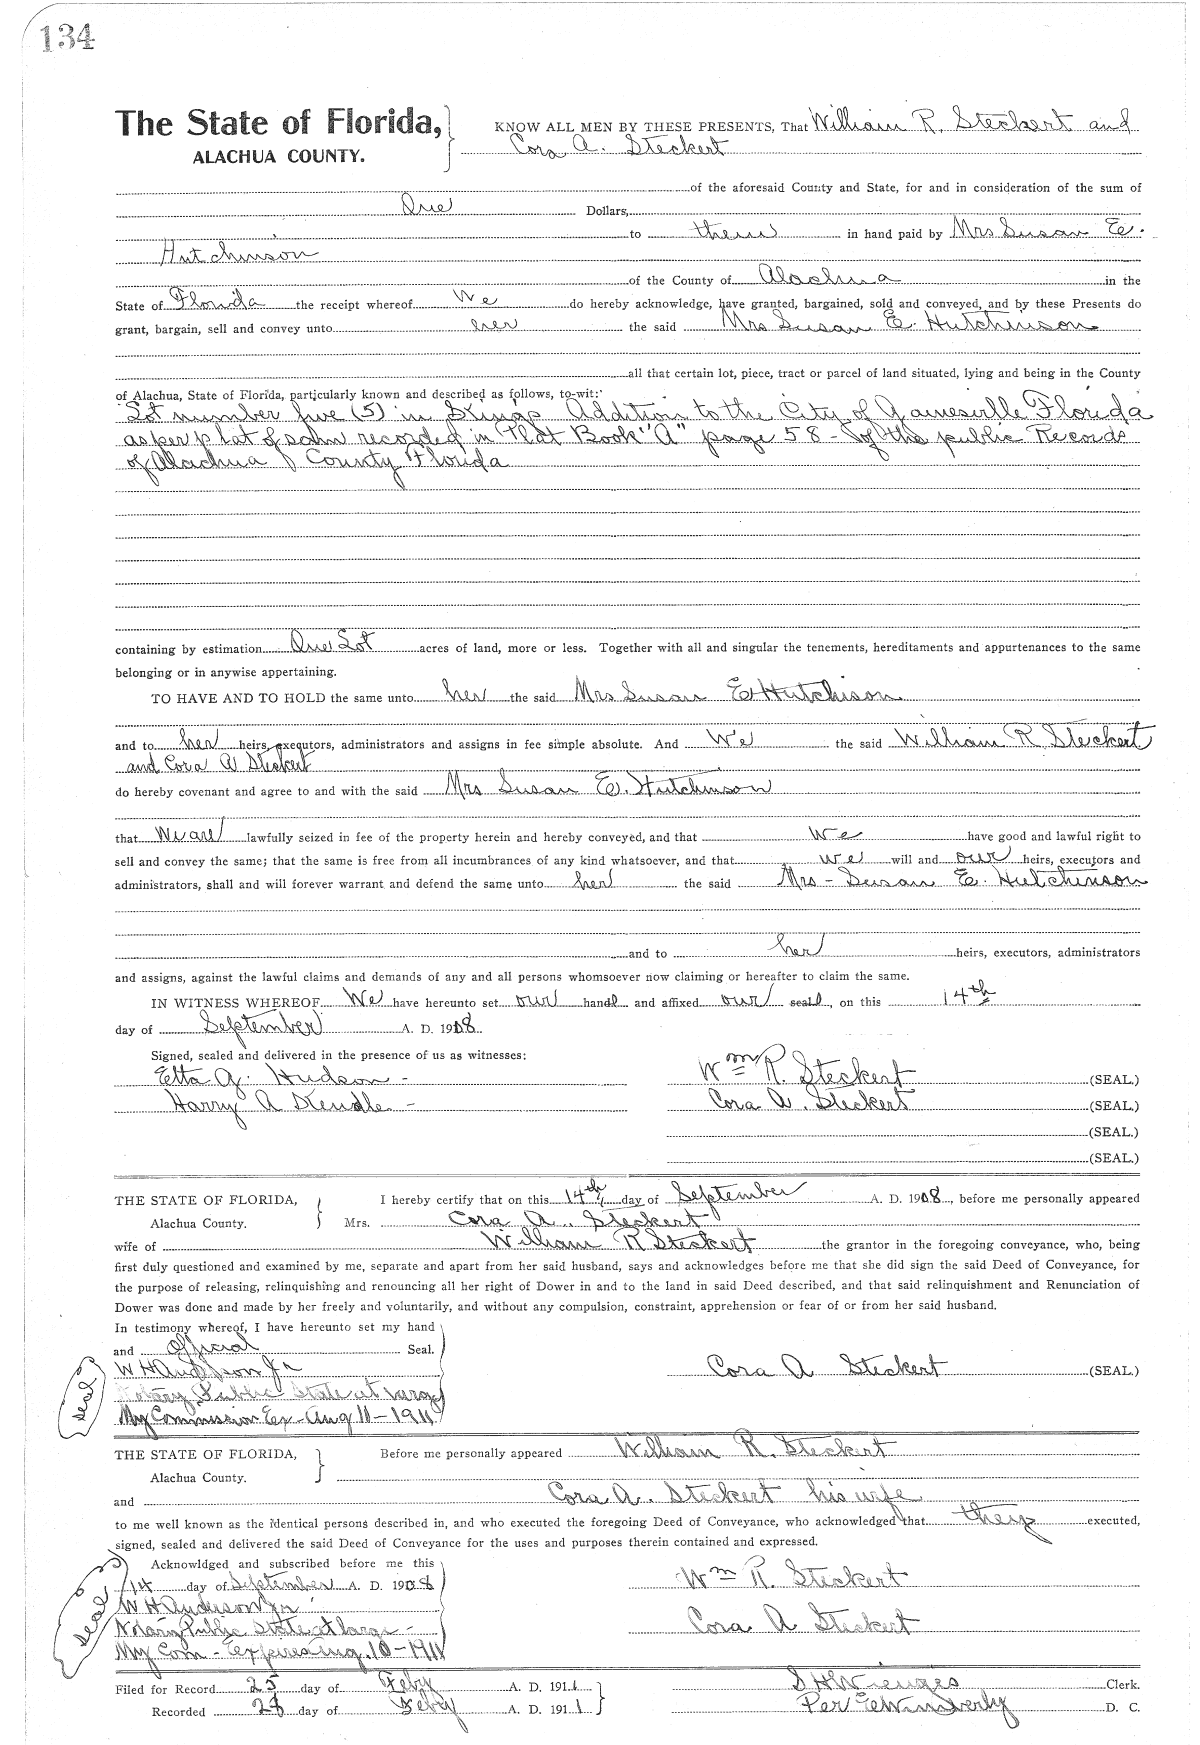 134
The State of Florida, KNOW ALL MEN BY THESE PRESENTS, That William R. Steckert and
ALACHUA COUNTY. Cora A. Steckert
of the aforesaid County and State, for and in consideration of the sum of
One Dollars,
to them in hand paid by Mrs Susan E.
Hutchinson
of the County of Alachua in the
State of Florida the receipt whereof We do hereby acknowledge, have granted, bargained, sold and conveyed, and by these Presents do
grant, bargain, sell and convey unto her the said Mrs Susan E. Hutchinson
all that certain lot, piece, tract or parcel of land situated, lying and being in the County
of Alachua, State of Florida, particularly known and described as follows, to-wit:
Lot number five (5) in Kings Addition to the City of Gainesville Florida
as per plat of sahn recorded in Plat Book "A" page 58 - of the public Records
of Alachua County Florida
containing by estimation One Lot acres of land, more or less. Together with all and singular the tenements, hereditaments and appurtenances to the same
belonging or in anywise appertaining.
TO HAVE AND TO HOLD the same unto her the said Mrs Susan E Hutchison
and to her heirs, executors, administrators and assigns in fee simple absolute. And We the said William R Steckert
and Cora A Steckert
do hereby covenant and agree to and with the said Mrs Susan E. Hutchinson
that We are lawfully seized in fee of the property herein and hereby conveyed, and that We have good and lawful right to
sell and convey the same; that the same is free from all incumbrances of any kind whatsoever, and that we will and our heirs, executors and
administrators, shall and will forever warrant and defend the same unto her the said Mrs - Susan E. Hutchinson
and to her heirs, executors, administrators
and assigns, against the lawful claims and demands of any and all persons whomsoever now claiming or hereafter to claim the same.
IN WITNESS WHEREOF We have hereunto set our hand and affixed our seal, on this 14th
day of September A. D. 1908
Signed, sealed and delivered in the presence of us as witnesses:
Etta G. Hudson - Wm R. Steckert (SEAL.)
Harry A - Cora A. Steckert (SEAL.)
(SEAL.)
(SEAL.)
THE STATE OF FLORIDA, I hereby certify that on this 14th day of September A. D. 1908, before me personally appeared
Alachua County. Mrs. Cora A. Steckert
wife of William R Steckert the grantor in the foregoing conveyance, who, being
first duly questioned and examined by me, separate and apart from her said husband, says and acknowledges before me that she did sign the said Deed of Conveyance, for
the purpose of releasing, relinquishing and renouncing all her right of Dower in and to the land in said Deed described, and that said relinquishment and Renunciation of
Dower was done and made by her freely and voluntarily, and without any compulsion, constraint, apprehension or fear of or from her said husband.
In testimony whereof, I have hereunto set my hand
and official Seal.
W H Anderson Jr Cora A Steckert (SEAL)
Seal Notary Public State at Large
My Commission Ex - Aug 11 - 1911
THE STATE OF FLORIDA, Before me personally appeared William R. Steckert
Alachua County.
and Cora A. Steckert his wife
to me well known as the identical persons described in, and who executed the foregoing Deed of Conveyance, who acknowledged that they executed,
signed, sealed and delivered the said Deed of Conveyance for the uses and purposes therein contained and expressed.
Acknowldged and subscribed before me this
14 day of September A. D. 1908 Wm R. Steckert
W H Anderson Jr
Seal Notary Public State at large - Cora A Steckert
My Com - Expires Aug. 10 - 1911
Filed for Record 25 day of Feby A. D. 1911 S H Wienges Clerk.
Recorded day of Feby A. D. 1911 Per E Wimberly D. C.